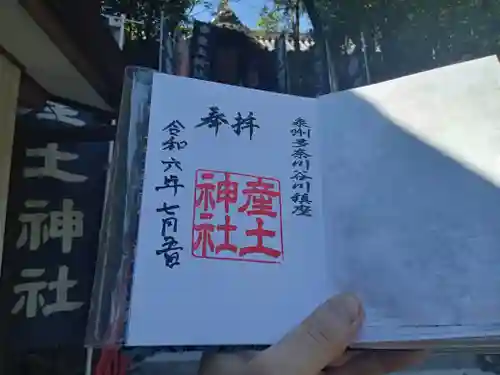 奉拝
泉州多奈川谷川鎮座
産土
神社
令和六年七月五日
土神社